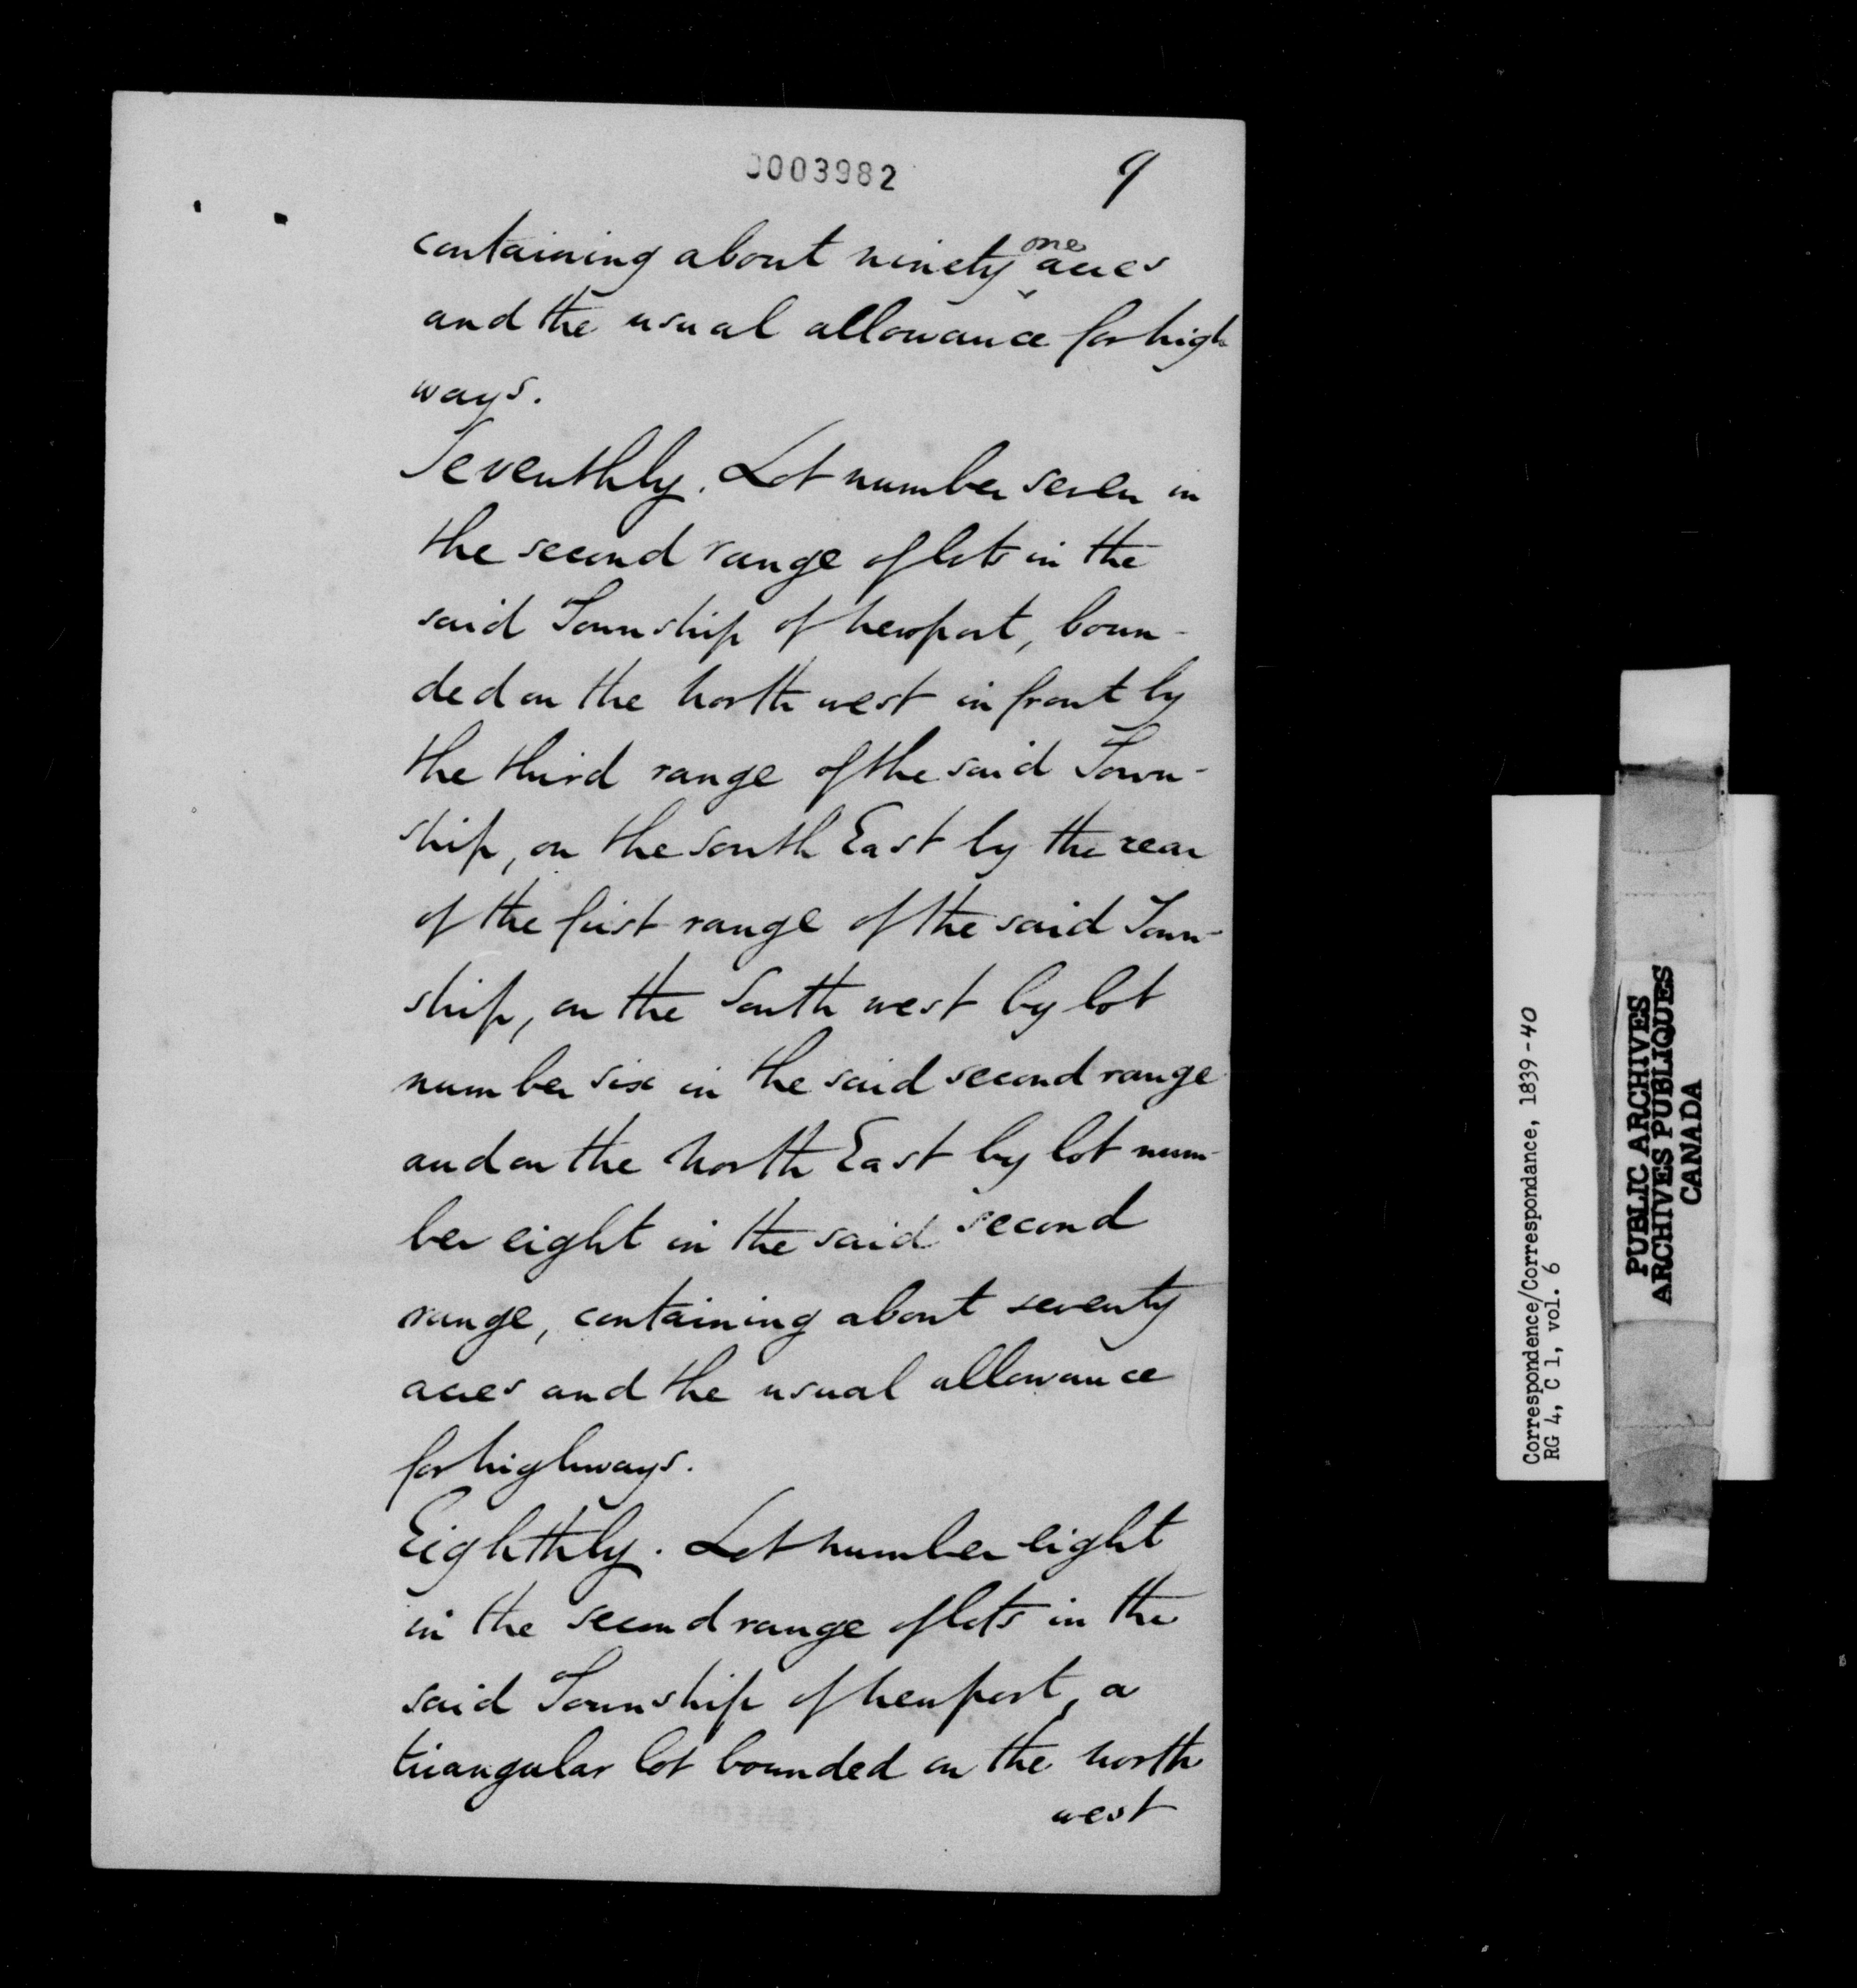 0003982
9
containing about ninety one acres
and the usual allowance for high
ways.
Seventhly. Lot number seven in
the second range of lots in the
said Township of Newport, boun-
ded on the North west in front by
the third range of the said Town-
ship, on the South East by the rear
of the first range of the said Town-
ship, on the South west by lot
number six in the said second range
and on the North East by lot num-
ber eight in the said second
range, containing about seventy
acres and the usual allowance
for highways.
Eighthly. Lot number eight
in the second range of lots in the
said Township of Newport, a
triangular lot bounded on the North
west
Correspondence/Correspondance, 1839-40
RG 4, C 1, vol. 6
PUBLIC ARCHIVES
ARCHIVES PUBLIQUES
CANADA